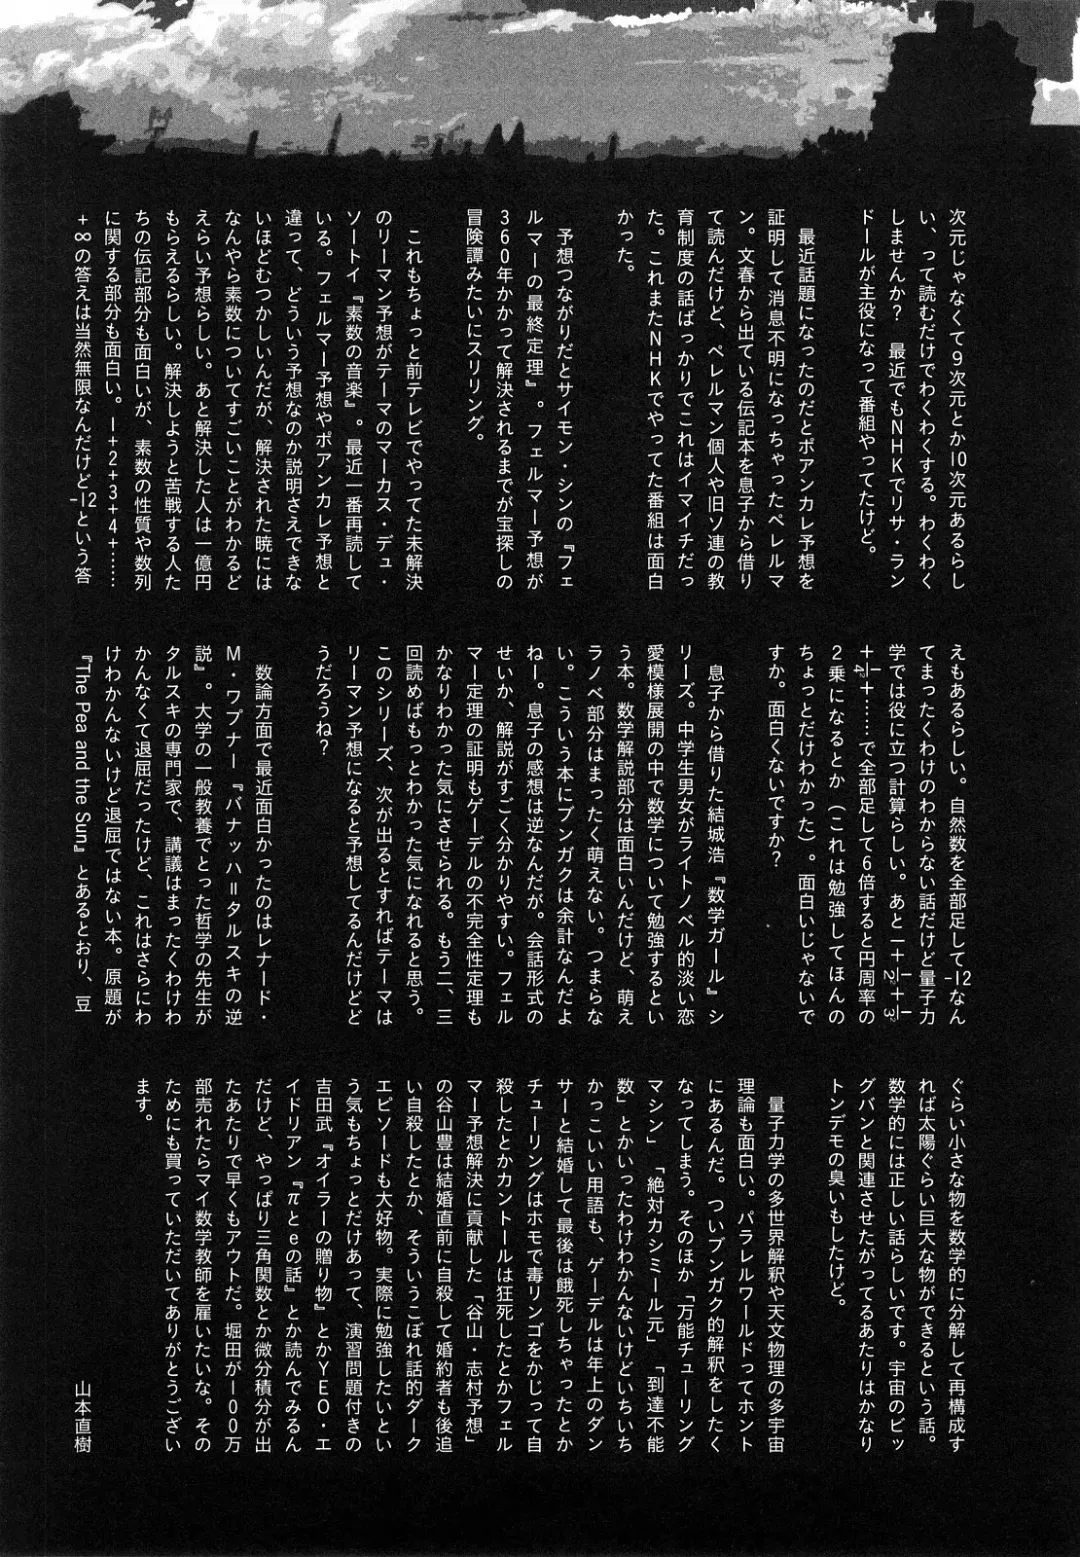 次元じゃなくて9次元とか10次元あるらし
い、って読むだけでわくわくする。わくわく
しませんか？　最近でもNHKでリサ・ラン
ドールが主役になって番組やってたけど。
最近話題になったのだとポアンカレ予想を
証明して消息不明になっちゃったペレルマ
ン。文春から出ている伝記本を息子から借り
て読んだけど、ペレルマン個人や旧ソ連の教
育制度の話ばっかりでこれはイマイチだっ
た。これまたNHKでやってた番組は面白
かった。
予想つながりだとサイモン・シンの『フェ
ルマーの最終定理』。フェルマー予想が
360年かかって解決されるまでが宝探しの
冒険譚みたいにスリリング。
これもちょっと前テレビでやってた未解決
のリーマン予想がテーマのマーカス・デュ・
ソートイ『素数の音楽』。最近一番再読して
いる。フェルマー予想やポアンカレ予想と
違って、どういう予想なのか説明さえできな
いほどむつかしいんだが、解決された暁には
なんやら素数についてすごいことがわかるど
えらい予想らしい。あと解決した人は一億円
もらえるらしい。解決しようと苦戦する人た
ちの伝記部分も面白いが、素数の性質や数列
に関する部分も面白い。1+2+3+4+……
+∞の答えは当然無限なんだけど-1/12という答
えもあるらしい。自然数を全部足して-1/12なん
てまったくわけのわからない話だけど量子力
学では役に立つ計算らしい。あと1+1/2²+1/3²
+1/4²+……で全部足して6倍すると円周率の
2乗になるとか（これは勉強してほんの
ちょっとだけわかった）。面白いじゃないで
すか。面白くないですか？
息子から借りた結城浩『数学ガール』シ
リーズ。中学生男女がライトノベル的淡い恋
愛模様展開の中で数学について勉強するとい
う本。数学解説部分は面白いんだけど、萌え
ラノベ部分はまったく萌えない。つまらな
い。こういう本にブンガクは余計なんだよ
ねー。息子の感想は逆なんだが。会話形式の
せいか、解説がすごく分かりやすい。フェル
マー定理の証明もゲーデルの不完全性定理も
かなりわかった気にさせられる。もう二、三
回読めばもっとわかった気になれると思う。
このシリーズ、次が出るとすればテーマは
リーマン予想になると予想してるんだけどど
うだろうね？
数論方面で最近面白かったのはレナード・
M・ワプナー『バナッハ＝タルスキの逆
説』。大学の一般教養でとった哲学の先生が
タルスキの専門家で、講義はまったくわけわ
かんなくて退屈だったけど、これはさらにわ
けわかんないけど退屈ではない本。原題が
『The Pea and the Sun』とあるとおり、豆
ぐらい小さな物を数学的に分解して再構成す
れば太陽ぐらい巨大な物ができるという話。
数学的には正しい話らしいです。宇宙のビッ
グバンと関連させたがってるあたりはかなり
トンデモの臭いもしたけど。
量子力学の多世界解釈や天文物理の多宇宙
理論も面白い。パラレルワールドってホント
にあるんだ。ついブンガク的解釈をしたく
なってしまう。そのほか「万能チューリング
マシン」「絶対カシミール元」「到達不能
数」とかいったわけわかんないけどいちいち
かっこいい用語も、ゲーデルは年上のダン
サーと結婚して最後は餓死しちゃったとか
チューリングはホモで毒リンゴをかじって自
殺したとかカントールは狂死したとかフェル
マー予想解決に貢献した「谷山・志村予想」
の谷山豊は結婚直前に自殺して婚約者も後追
い自殺したとか、そういうこぼれ話的ダーク
エピソードも大好物。実際に勉強したいとい
う気もちょっとだけあって、演習問題付きの
吉田武『オイラーの贈り物』とかYEO・エ
イドリアン『πとeの話』とか読んでみるん
だけど、やっぱり三角関数とか微分積分が出
たあたりで早くもアウトだ。堀田が100万
部売れたらマイ数学教師を雇いたいな。その
ためにも買っていただいてありがとうござい
ます。
山本直樹